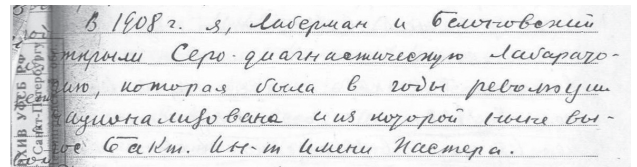 В 1908 г. я, Либерман и Белоновский
открыли Серо-диагнастическую Лабарато-
рию, которая была в годы революции
национализована и из которой ныне вы-
рос Бакт. Ин-т имени Пастера.
ХИВ УФСБ РФ
Санкт-Петербургу